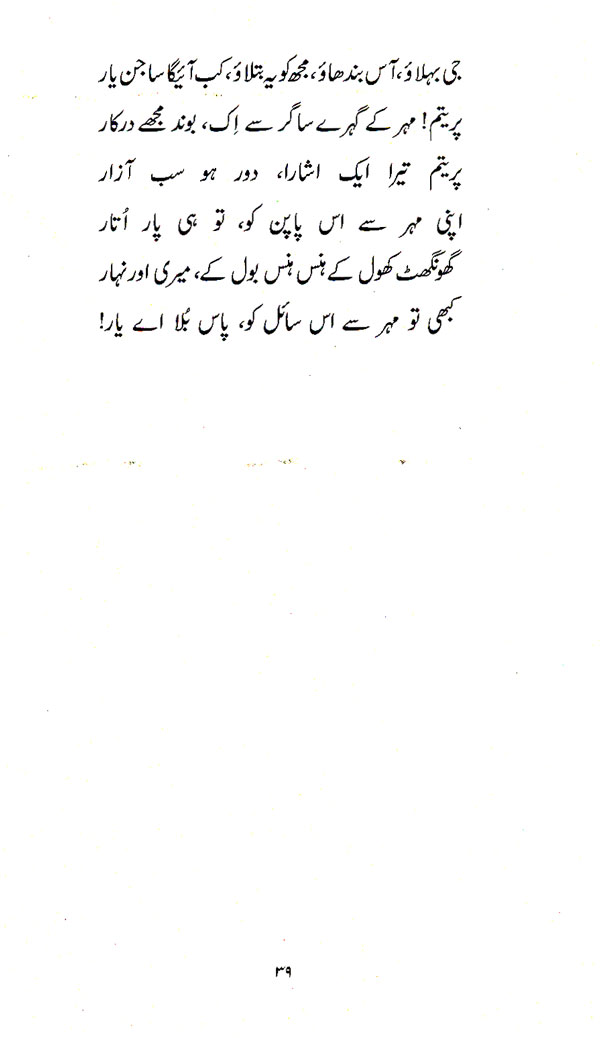 جی بہلاؤ، آس بندھاؤ، مجھ کو یہ بتلاؤ، کب آئیگا ساجن یار
پریتم! مہر کے گہرے ساگر سے اِک، بوند مجھے درکار
پریتم تیرا ایک اشارا، دور ہو سب آزار
اپنی مہر سے اس پاپن کو، تو ہی پار اُتار
گھونگھٹ کھول کے ہنس ہنس بول کے، میری اور نہار
کبھی تو مہر سے اس سائل کو، پاس بُلا اے یار!
۳۹